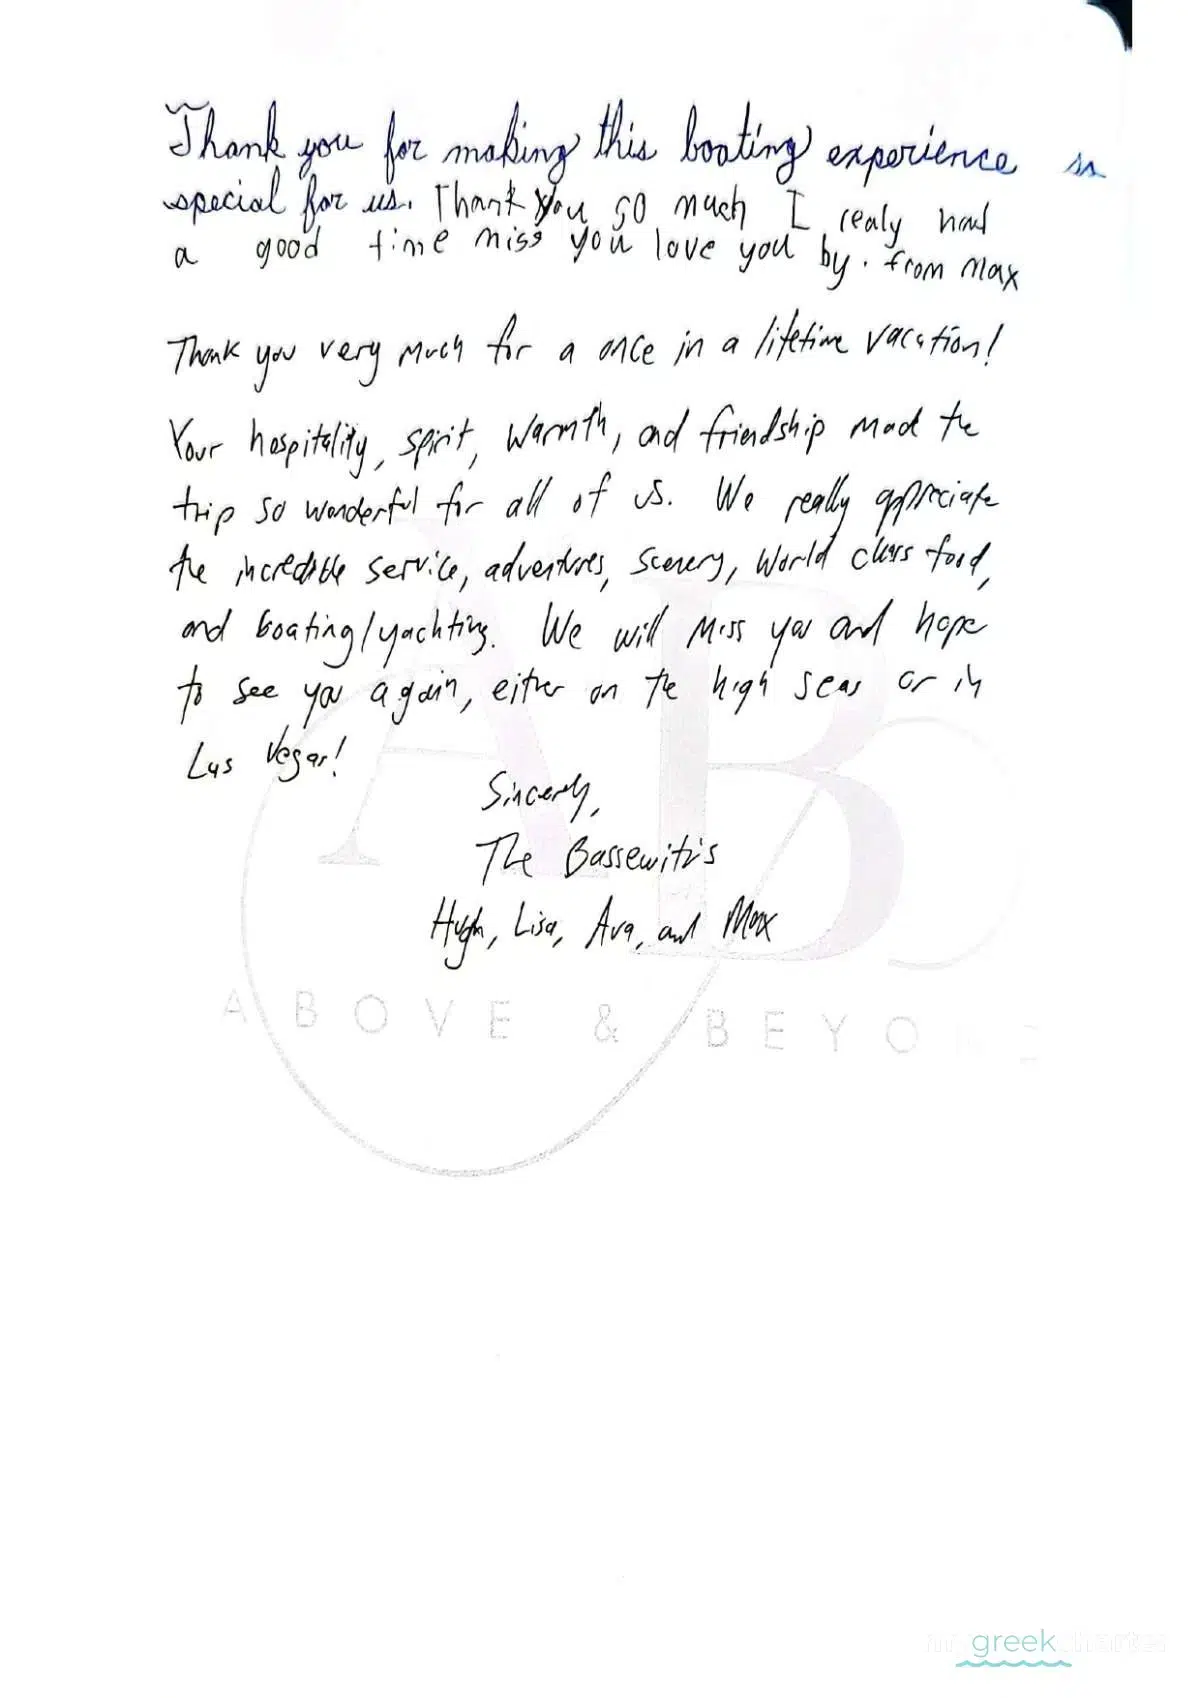 Thank you for making this boating experience so
special for us. Thank you so much I realy had
a good time miss you love you by. from Max
Thank you very much for a once in a lifetime vacation!
Your hospitality, spirit, warmth, and friendship mad the
trip so wonderful for all of us. We really appreciate
the incredible service, adventures, scenery, world class food,
and boating/yachting. We will miss you and hope
to see you again, either on the high seas or in
Las Vegas!
Sincerely,
The Bassewitz's
Hugh, Lisa, Ava, and Max
AB
ABOVE & BEYOND
my greek charter